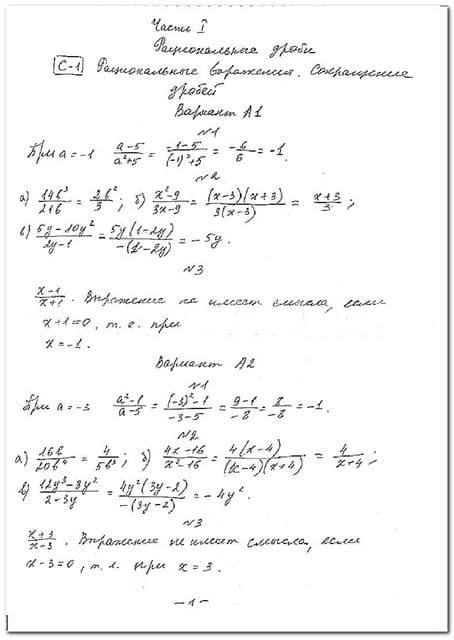 Часть I
Рациональные дроби
С-1 Рациональные выражения. Сокращение
дробей
Вариант А1
№1
При a = -1 (a-5)/(a²+5) = (-1-5)/((-1)²+5) = -6/6 = -1.
№2
а) 14b³/21b = 2b²/3; б) (x²-9)/(3x-9) = (x-3)(x+3)/3(x-3) = (x+3)/3;
в) (5y-10y²)/(2y-1) = 5y(1-2y)/-(1-2y) = -5y.
№3
(x-1)/(x+1). Выражение не имеет смысла, если
x+1=0, т.е. при
x=-1.
Вариант А2
№1
При a = -3 (a²-1)/(a-5) = ((-3)²-1)/(-3-5) = (9-1)/-8 = 8/-8 = -1.
№2
а) 16b/20b⁴ = 4/5b³; б) (4x-16)/(x²-16) = 4(x-4)/(x-4)(x+4) = 4/(x+4);
в) (12y³-8y²)/(2-3y) = 4y²(3y-2)/-(3y-2) = -4y².
№3
(x+3)/(x-3). Выражение не имеет смысла, если
x-3=0, т.е. при x=3.
-1-